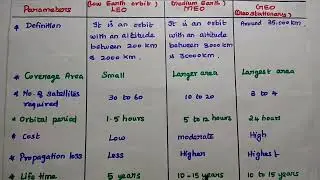 (Low Earth orbit) (Medium Earth) GEO
Parameters LEO MEO (Geostationary)
* Definition It is an orbit It is an orbit Around 35,000 km.
with an altitude with an altitude
between 200 km between 2000 km
& 2000 km. & 35000 km.
* Coverage Area Small Larger area Largest area
* No. of Satellites 30 to 60 10 to 20 3 to 4
required
* Orbital period 1-5 hours 5 to 12 hours 24 hours
* Cost Low moderate High
* Propagation loss Less Higher Highest
* Life time 5 years 10-15 years 10 to 15 years